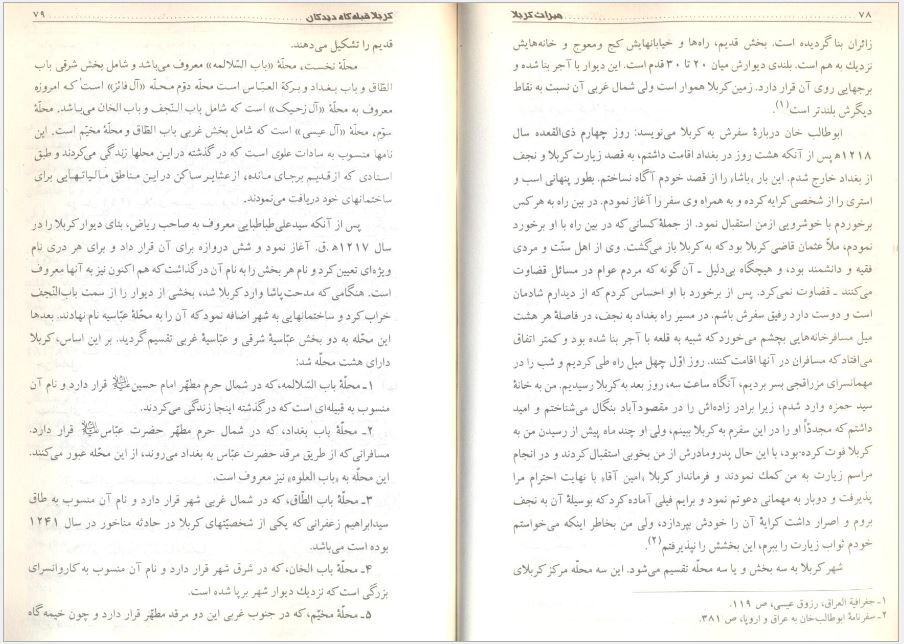 ۷۸ میراث کربلا
زائران بنا گردیده است. بخش قدیم، راه‌ها و خیابانهایش کج ومعوج و خانه‌هایش
نزدیك به هم است. بلندی دیوارش میان ۲۰ تا ۳۰ قدم است. این دیوار با آجر بنا شده و
برجهایی روی آن قرار دارد. زمین کربلا هموار است ولی شمال غربی آن نسبت به نقاط
دیگرش بلندتر است(۱).
ابوطالب خان دربارهٔ سفرش به کربلا می‌نویسد: روز چهارم ذی‌القعده سال
۱۲۱۸ه‍ پس از آنکه هشت روز در بغداد اقامت داشتم، به قصد زیارت کربلا و نجف
از بغداد خارج شدم. این بار «پاشا» را از قصد خودم آگاه نساختم. بطور پنهانی اسب و
استری را از شخصی کرایه کرده و به همراه وی سفر را آغاز نمودم. در بین راه به هر کس
برخوردم با خوشرویی ازمن استقبال نمود. از جملهٔ کسانی که در بین راه با او برخورد
نمودم، ملاّ عثمان قاضی کربلا بود که به کربلا باز می‌گشت. وی از اهل سنّت و مردی
فقیه و دانشمند بود، و هیچگاه بی‌دلیل ـ آن گونه که مردم عوام در مسائل قضاوت
می‌کنند ـ قضاوت نمی‌کرد. پس از برخورد با او احساس کردم که از دیدارم شادمان
است و دوست دارد رفیق سفرش باشم. در مسیر راه بغداد به نجف، در فاصلهٔ هر هشت
میل مسافرخانه‌هایی بچشم می‌خورد که شبیه به قلعه با آجر بنا شده بود و کمتر اتفاق
می‌افتاد که مسافران در آنها اقامت کنند. روز اوّل چهل میل راه طی کردیم و شب را در
مهمانسرای مزراقجی بسر بردیم، آنگاه ساعت سه، روز بعد به کربلا رسیدیم. من به خانهٔ
سید حمزه وارد شدم، زیرا برادر زاده‌اش را در مقصودآباد بنگال می‌شناختم و امید
داشتم که مجدداً او را در این سفرم به کربلا ببینم، ولی او چند ماه پیش از رسیدن من به
کربلا فوت کرده بود، با این حال پدرومادرش از من بخوبی استقبال کردند و در انجام
مراسم زیارت به من کمك نمودند و فرماندار کربلا «امین آقا» با نهایت احترام مرا
پذیرفت و دوبار به مهمانی دعوتم نمود و برایم فیلی آماده کرد که بوسیلهٔ آن به نجف
بروم و اصرار داشت کرایهٔ آن را خودش بپردازد، ولی من بخاطر اینکه می‌خواستم
خودم ثواب زیارت را ببرم، این بخشش را نپذیرفتم(۲).
شهر کربلا به سه بخش و یا سه محلّه تقسیم می‌شود. این سه محله مرکز کربلای
۱ـ جغرافیة العراق، رزوق عیسی، ص ۱۱۹.
۲ـ سفرنامهٔ ابوطالب‌خان به عراق و اروپا، ص ۳۸۱.
کربلا قبله گاه دیدگان ۷۹
قدیم را تشکیل می‌دهند.
محلّهٔ نخست، محلّهٔ «باب السّلالمه» معروف می‌باشد و شامل بخش شرقی باب
الطّاق و باب بغداد و برکة العبّاس است محلّه دوّم محلّه «آل فائز» است که امروزه
معروف به محلّهٔ «آل زحیک» است که شامل باب النّجف و باب الخان می‌باشد. محلّهٔ
سوّم، محلّهٔ «آل عیسی» است که شامل بخش غربی باب الطّاق و محلّهٔ مخیّم است. این
نامها منسوب به سادات علوی است که در گذشته در این محلها زندگی می‌کردند و طبق
اسنادی که از قدیم برجای مانده، از عشایر ساکن در این مناطق مالیاتهایی برای
ساختمانهای خود دریافت می‌نمودند.
پس از آنکه سیدعلی طباطبایی معروف به صاحب ریاض، بنای دیوار کربلا را در
سال ۱۲۱۷ه‍.ق. آغاز نمود و شش دروازه برای آن قرار داد و برای هر دری نام
ویژه‌ای تعیین کرد و نام هر بخش را به نام آن درگذاشت که هم اکنون نیز به آنها معروف
است. هنگامی که مدحت پاشا وارد کربلا شد، بخشی از دیوار را از سمت باب‌النّجف
خراب کرد و ساختمانهایی به شهر اضافه نمود که آن را به محلّهٔ عبّاسیه نام نهادند. بعدها
این محلّه به دو بخش عبّاسیهٔ شرقی و عبّاسیهٔ غربی تقسیم گردید. بر این اساس، کربلا
دارای هشت محلّه شد:
۱ـ محلّهٔ باب السّلالمه، که در شمال حرم مطهّر امام حسین علیه السلام قرار دارد و نام آن
منسوب به قبیله‌ای است که در گذشته اینجا زندگی می‌کردند.
۲ـ محلّهٔ باب بغداد، که در شمال حرم مطهّر حضرت عبّاس علیه السلام قرار دارد.
مسافرانی که از طریق مرقد حضرت عبّاس به بغداد می‌روند، از این محلّه عبور می‌کنند.
این محلّه به «باب العلوه» نیز معروف است.
۳ـ محلّهٔ باب الطّاق، که در شمال غربی شهر قرار دارد و نام آن منسوب به طاق
سیدابراهیم زعفرانی که یکی از شخصیّتهای کربلا در حادثه مناخور در سال ۱۲۴۱
بوده است می‌باشد.
۴ـ محلّهٔ باب الخان، که در شرق شهر قرار دارد و نام آن منسوب به کاروانسرای
بزرگی است که نزدیك دیوار شهر برپا شده است.
۵ـ محلّهٔ مخیّم، که در جنوب غربی این دو مرقد مطهّر قرار دارد و چون خیمه گاه